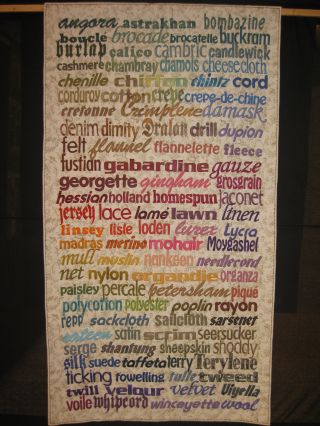 angora astrakhan bombazine
boucle brocade brocatelle buckram
burlap calico cambric candlewick
cashmere chambray chamois cheesecloth
chenille chiffon chintz cord
corduroy cotton crepe crepe-de-chine
cretonne Crimplene damask
denim dimity Dralon drill dupion
felt flannel flannelette fleece
fustian gabardine gauze
georgette gingham grosgrain
hessian holland homespun jaconet
jersey lace lamé lawn linen
linsey lisle loden lurex Lycra
madras merino mohair Moygashel
mull muslin nankeen needlecord
net nylon organdie organza
paisley percale petersham piqué
polycotton polyester poplin rayon
repp sackcloth sailcloth sarsenet
sateen satin scrim seersucker
serge shantung sheepskin shoddy
silk suede taffeta terry Terylene
ticking towelling tulle tweed
twill velour velvet Viyella
voile whipcord winceyette wool